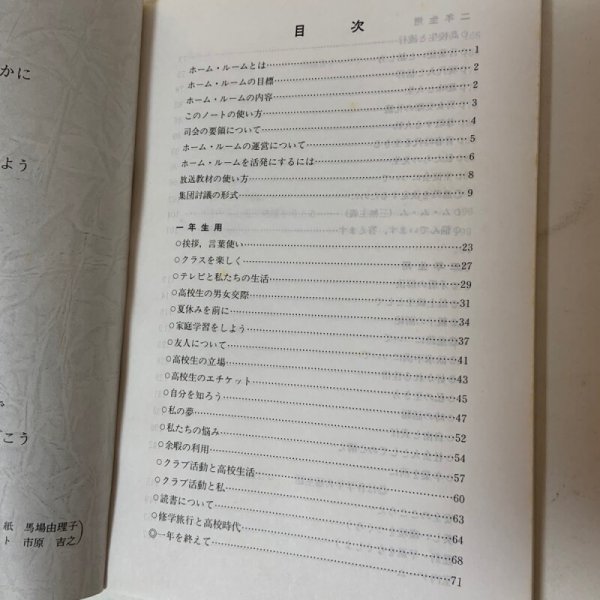 目次
ホーム・ルームとは……1
ホーム・ルームの目標……2
ホーム・ルームの内容……2
このノートの使い方……3
司会の要領について……4
ホーム・ルームの運営について……5
ホーム・ルームを活発にするには……6
放送教材の使い方……8
集団討議の形式……9
一年生用
○挨拶,言葉使い……23
○クラスを楽しく……27
○テレビと私たちの生活……29
○高校生の男女交際……31
○夏休みを前に……34
○家庭学習をしよう……37
○友人について……41
○高校生の立場……43
○高校生のエチケット……45
○自分を知ろう……47
○私の夢……52
○私たちの悩み……54
○余暇の利用……57
○クラブ活動と高校生活……60
○クラブ活動と私……63
○読書について……64
○修学旅行と高校時代……68
◎一年を終えて……71
かに
よう
で
こう
紙 馬場由理子
ト 市原 吉之